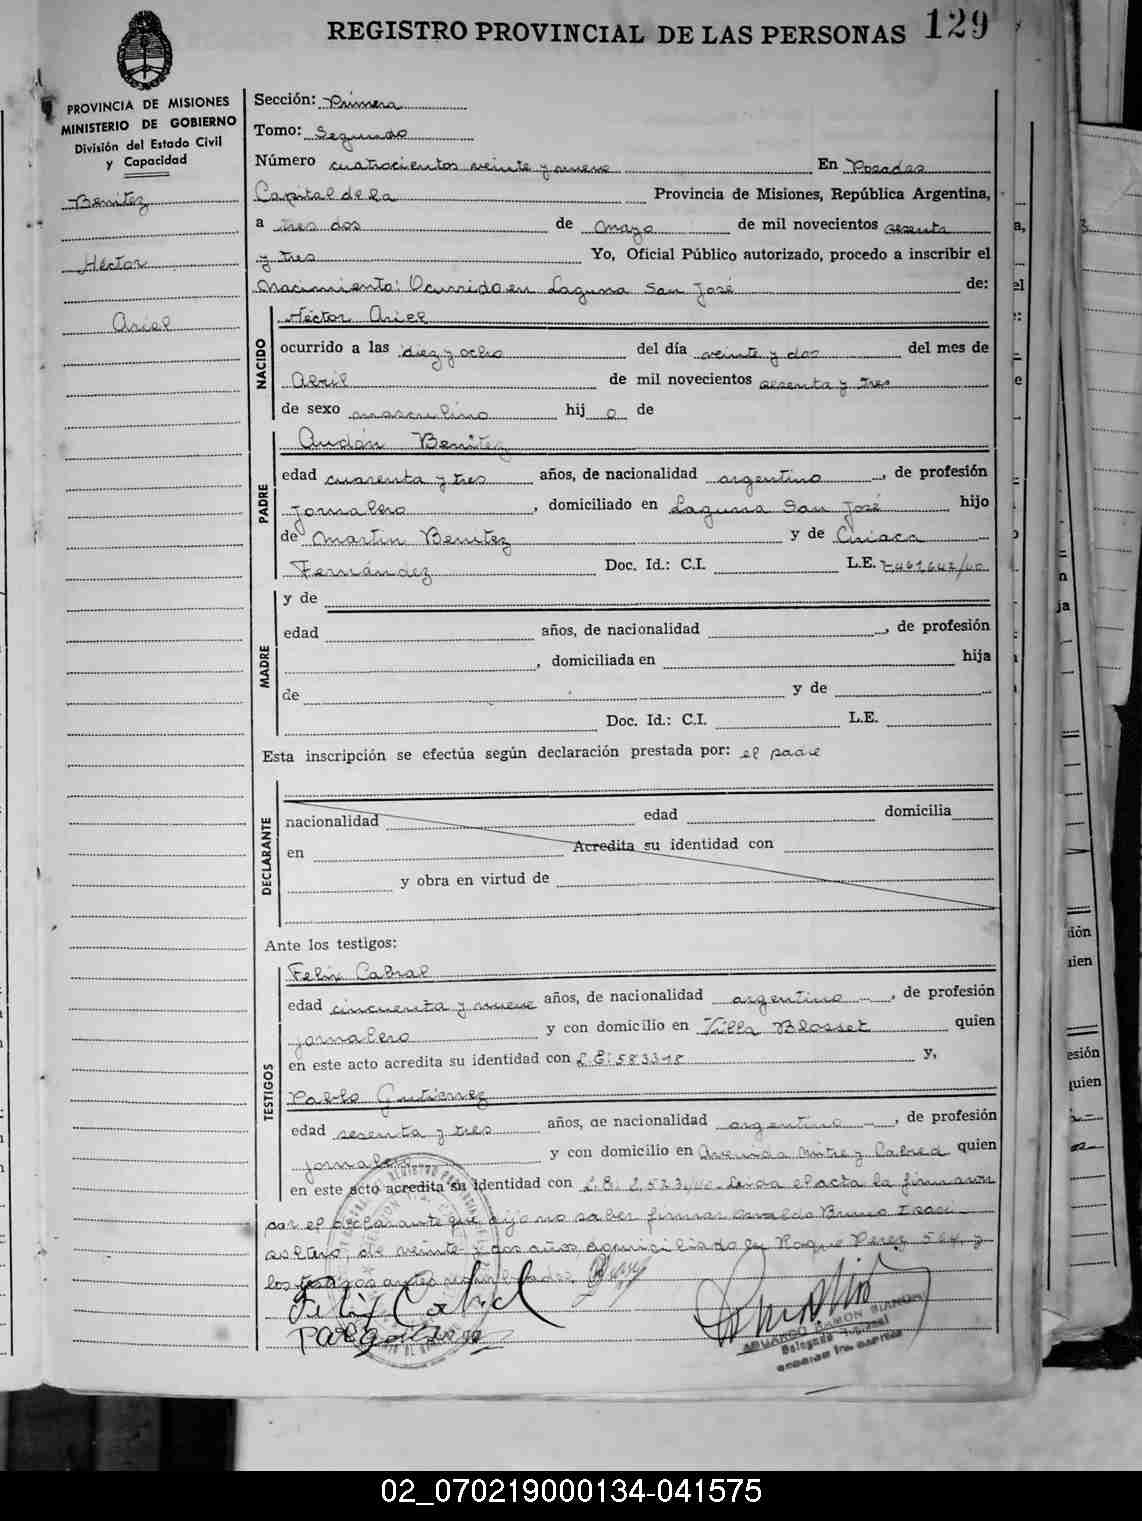 REGISTRO PROVINCIAL DE LAS PERSONAS 129
PROVINCIA DE MISIONES
MINISTERIO DE GOBIERNO
División del Estado Civil
y Capacidad
Benítez
Héctor
Ariel
Sección: Primera
Tomo: Segundo
Número cuatrocientos veinte y nueve En Posadas
Capital de la Provincia de Misiones, República Argentina,
a tres dos de mayo de mil novecientos sesenta
y tres Yo, Oficial Público autorizado, procedo a inscribir el
Nacimiento: Ocurrido en Laguna San José de:
NACIDO
Héctor Ariel
ocurrido a las diez y ocho del día veinte y dos del mes de
Abril de mil novecientos sesenta y tres
de sexo masculino hij o de
PADRE
Audón Benítez
edad cuarenta y tres años, de nacionalidad argentino, de profesión
Jornalero, domiciliado en Laguna San José hijo
de Martin Benitez y de Ciriaca
Fernández Doc. Id.: C.I. L.E. 7.461.647/40
MADRE
y de
edad años, de nacionalidad, de profesión
, domiciliada en hija
de y de
Doc. Id.: C.I. L.E.
Esta inscripción se efectúa según declaración prestada por: el padre
DECLARANTE
nacionalidad edad domicilia
en Acredita su identidad con
y obra en virtud de
Ante los testigos:
TESTIGOS
Felix Cabral
edad cincuenta y nueve años, de nacionalidad argentino, de profesión
jornalero y con domicilio en Villa Blosset quien
en este acto acredita su identidad con L.E: 583318 y,
Pablo Gutierrez
edad sesenta y tres años, de nacionalidad argentino, de profesión
jornalero y con domicilio en Avenida Mitre y Cabred quien
en este acto acredita su identidad con L.E: Leida el acta la firmaron
por el declarante que dijo no saber firmar Osvaldo Bruno
soltero, de veinte y dos años, domiciliado en Roque Perez 564, y
los testigos antes nombrados.
Felix Cabral
EDUARDO RAMON BIANCHI
Delegado
02_070219000134-041575